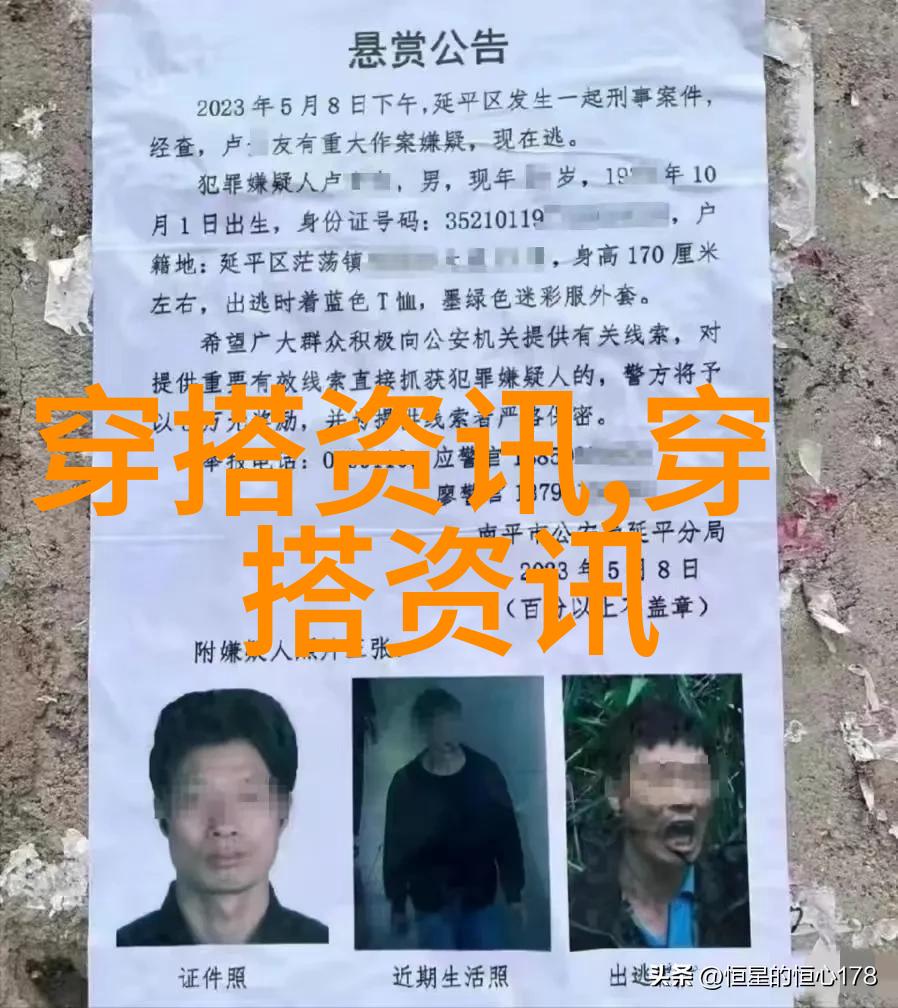 悬赏公告
2023年5月8日下午,延平区发生一起刑事案件,
经查，卢 友有重大作案嫌疑，现在逃。
犯罪嫌疑人卢 ，男，现年 岁，19 年10
月1日出生，身份证号码：35210119 ，户
籍地：延平区茫荡镇 ，身高170厘米
左右，出逃时着蓝色T恤，墨绿色迷彩服外套。
希望广大群众积极向公安机关提供有关线索，对
提供重要有效线索直接抓获犯罪嫌疑人的，警方将予
以 万元奖励，并 提供线索者严格保密。
穿搭资讯,穿
举报电话： 应警官
廖警官
南平市公安局延平分局
搭资讯
2023年5月8日
（百份以上不盖章）
附嫌疑人照片三张
证件照 近期生活照 出逃
头条 @恒星的恒心178